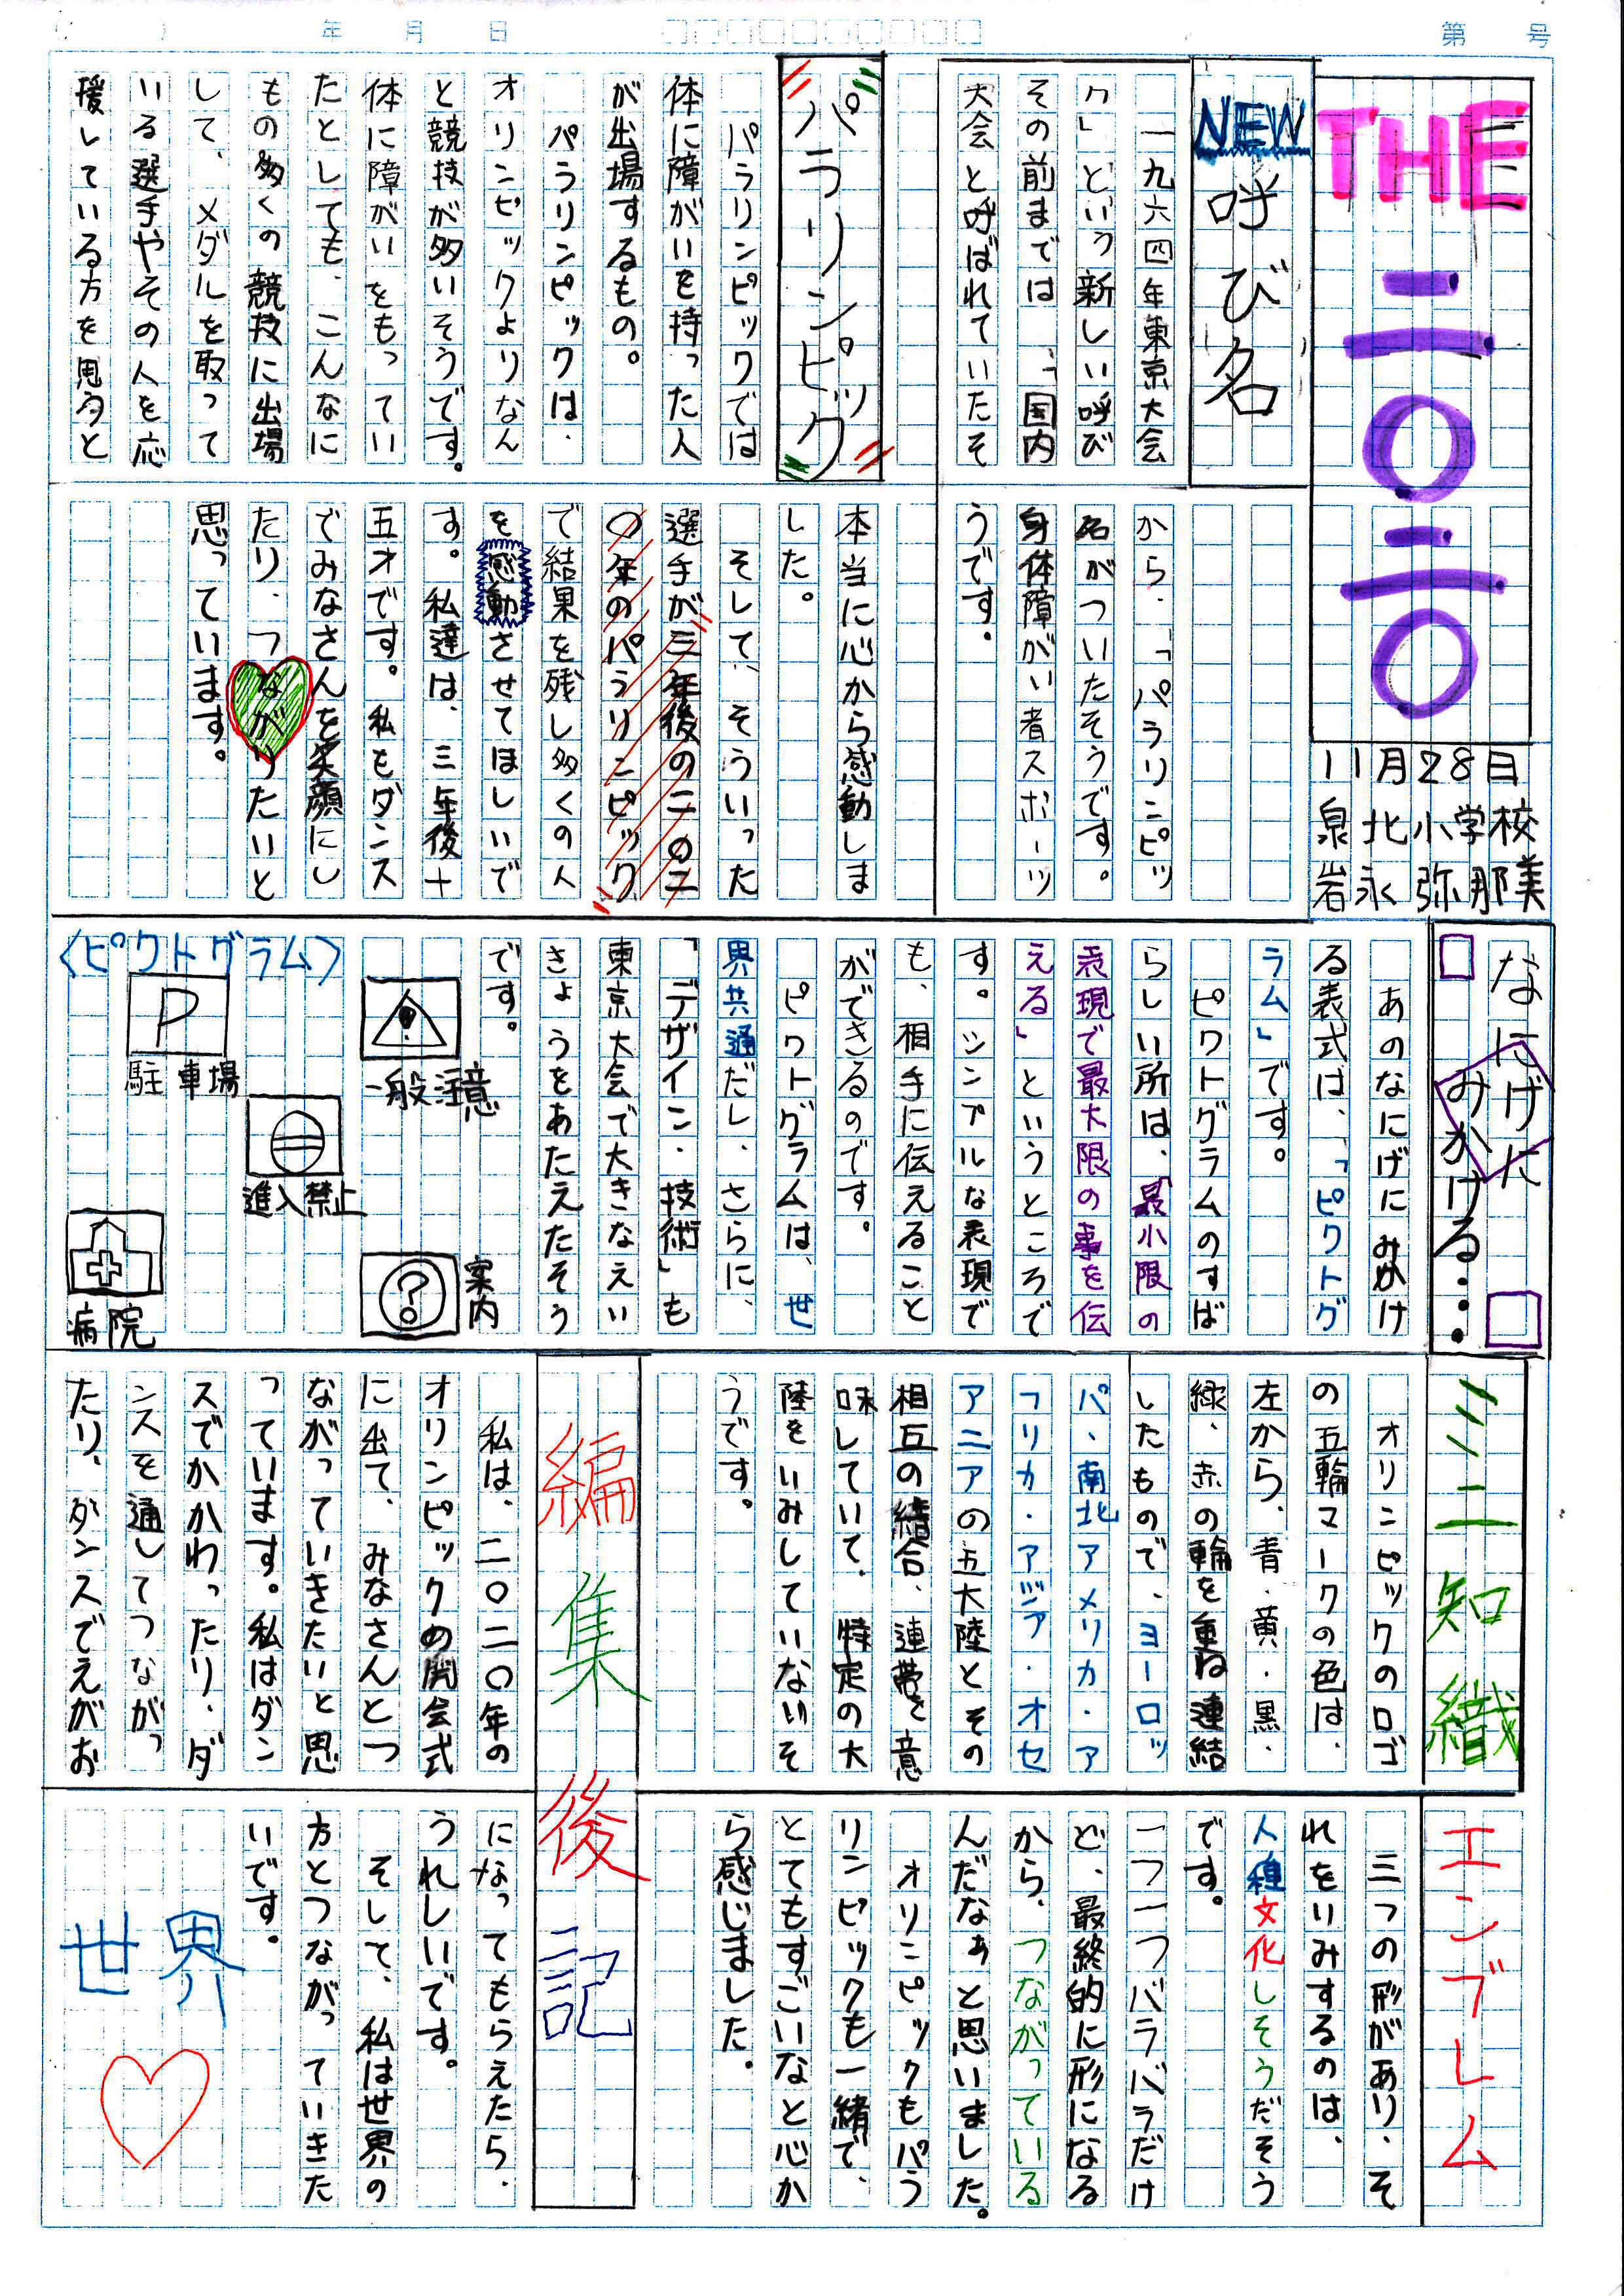 第　号
年　月　日
THE
二〇二〇
11月28日
泉北小学校
岩永弥那美
NEW呼び名
一九六四年東京大会
から、「パラリンピッ
ク」という新しい呼び
名がついたそうです。
その前までは、「国内
身体障がい者スポーツ
大会と呼ばれていたそ
うです。
パラリンピック
パラリンピックでは
体に障がいを持った人
が出場するもの。
パラリンピックは、
オリンピックよりなん
と競技が多いそうです。
体に障がいをもってい
たとしても、こんなに
もの多くの競技に出場
して、メダルを取って
いる選手やその人を応
援している方を見ると
本当に心から感動しま
した。
そして、そういった
選手が三年後の二〇二
〇年のパラリンピック
で結果を残し多くの人
を感動させてほしいで
す。私達は、三年後十
五才です。私もダンス
でみなさんを笑顔にし
たり、つながりたいと
思っています。
なにげに
みかける…
あのなにげにみかけ
る表式は、「ピクトグ
ラム」です。
ピクトグラムのすば
らしい所は、「最小限の
表現で最大限の事を伝
える」というところで
す。シンプルな表現で
も、相手に伝えること
ができるのです。
ピクトグラムは、世
界共通だし、さらに、
「デザイン・技術」も
東京大会で大きなえい
きょうをあたえたそう
です。
一般注意
案内
〈ピクトグラム〉
P
駐車場
進入禁止
病院
ミニ知織
オリンピックのロゴ
の五輪マークの色は、
左から、青・黄・黒・
緑、赤の輪を重ね連結
したもので、ヨーロッ
パ、南北アメリカ・ア
フリカ・アジア・オセ
アニアの五大陸とその
相互の結合、連帯を意
味していて、特定の大
陸をいみしていないそ
うです。
エンブレム
三つの形があり、そ
れをいみするのは、
人種文化しそうだそう
です。
一つ一つバラバラだけ
ど、最終的に形になる
から、つながっている
んだなぁと思いました。
オリンピックもパラ
リンピックも一緒で、
とてもすごいなと心か
ら感じました。
編集後記
私は、二〇二〇年の
オリンピックの開会式
に出て、みなさんとつ
ながっていきたいと思
っています。私はダン
スでかかわったり、ダ
ンスを通してつながっ
たり、ダンスでえがお
になってもらえたら、
うれしいです。
そして、私は世界の
方とつながっていきた
いです。
世界